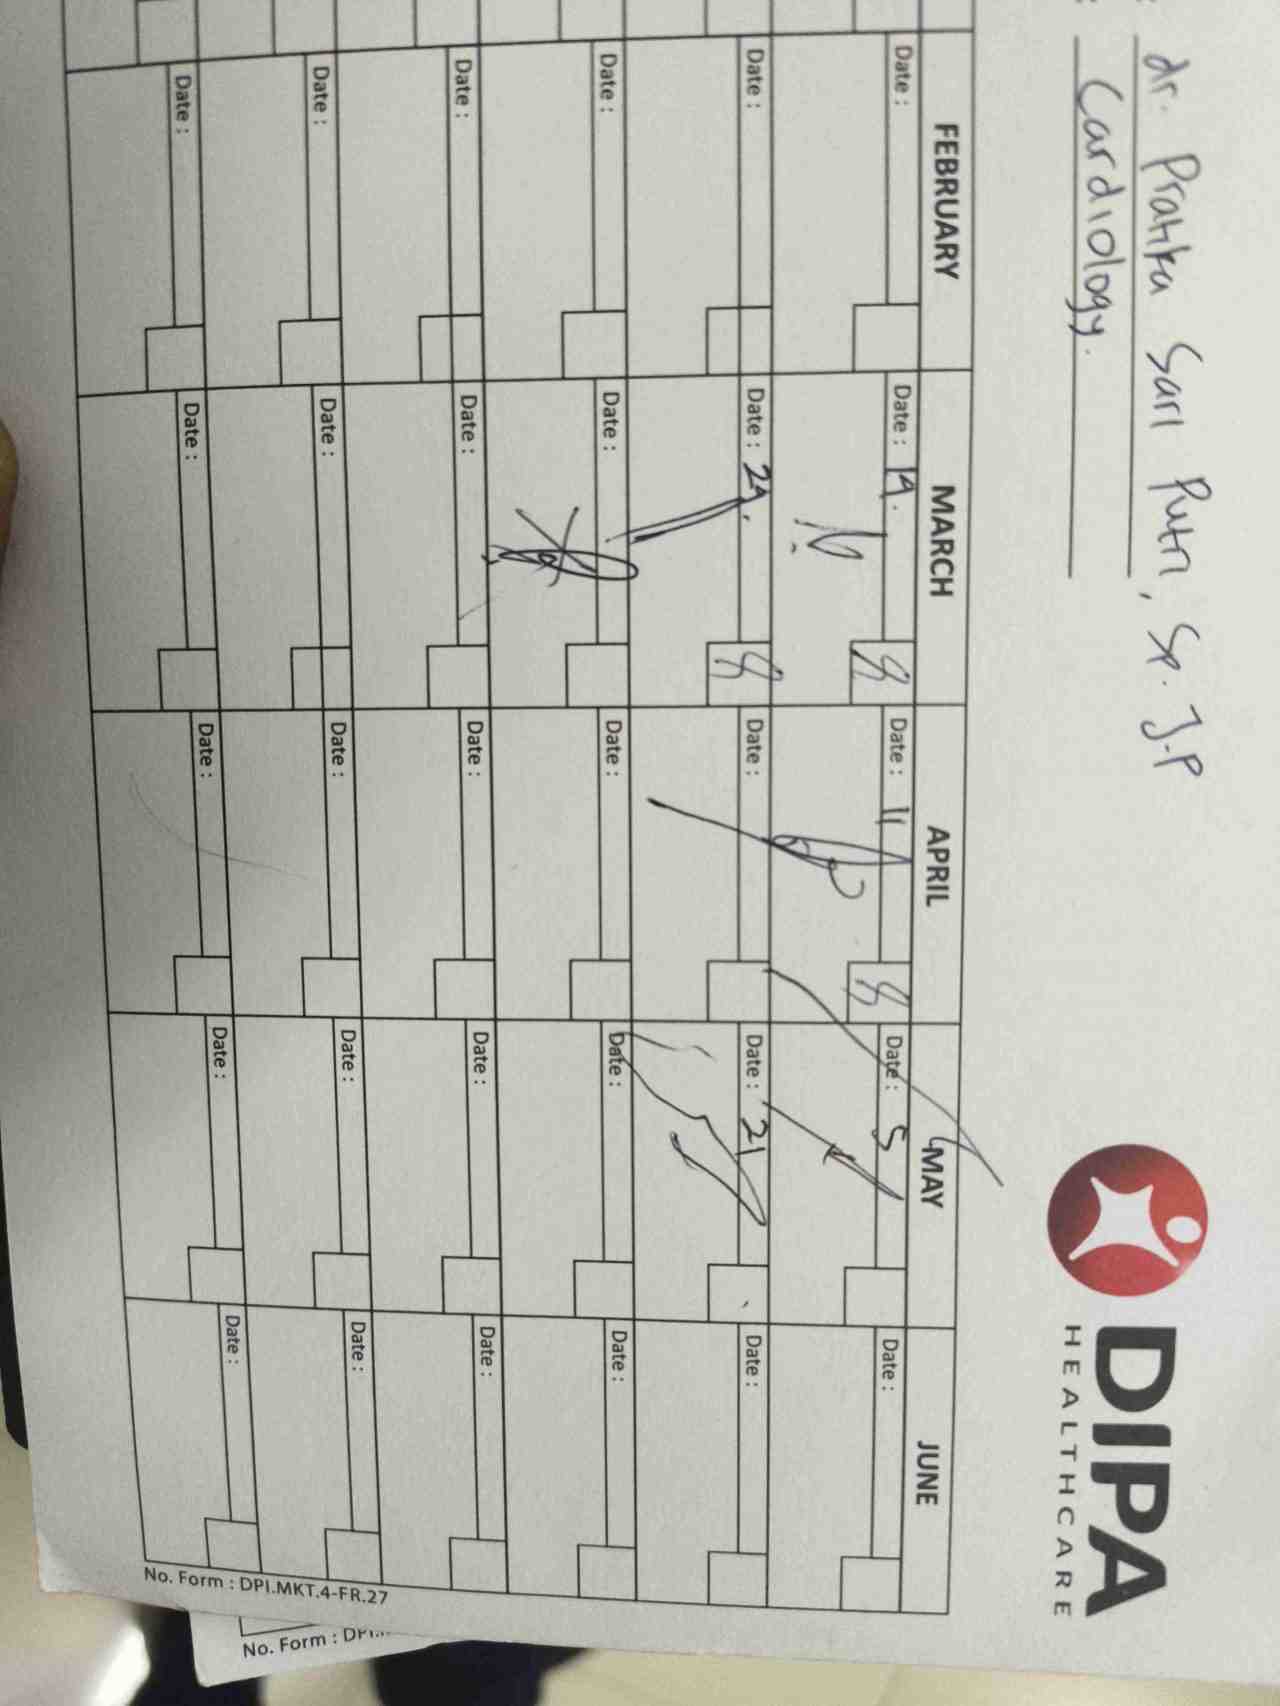 : dr. Pratika Sari Putri, Sp. J.P
: Cardiology.
DIPA
HEALTHCARE
FEBRUARY MARCH APRIL MAY JUNE
Date : Date : 19. Date : 11 Date : 5 Date :
Date : Date : 24. Date : Date : 21 Date :
Date : Date : Date : Date : Date :
Date : Date : Date : Date : Date :
Date : Date : Date : Date : Date :
Date : Date : Date : Date : Date :
No. Form : DPI.MKT.4-FR.27
No. Form :